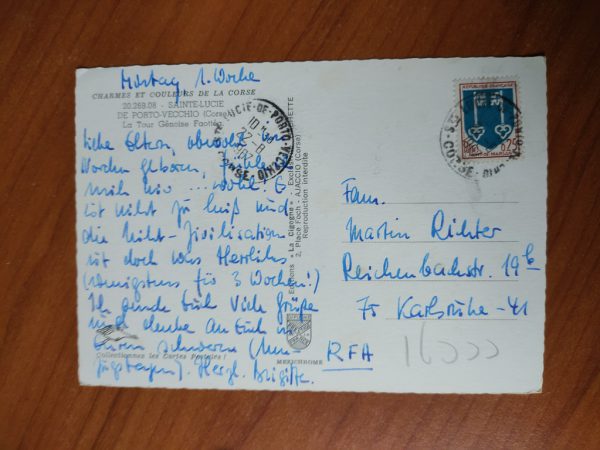 Montag 1. Woche
CHARMES ET COULEURS DE LA CORSE
20.269.08 - SAINTE-LUCIE
DE PORTO-VECCHIO (Corse)
La Tour Génoise Faotéa
liebe Eltern, obwohl im
Norden geboren, fühle
mich hier wohl. Es
ist nicht zu heiß und
die Nicht-Zivilisation
ist doch was Herrliches
(wenigstens für 3 Wochen!)
Ich sende Euch Viele Grüße
und denke an Euch in
Euren schweren
Herzl. Brigitte.
Collectionnez les Cartes Postales !
Editions "La Cigogne"
2, Place Foch - AJACCIO (Corse)
Reproduction interdite
MEXICHROME
STE LUCIE-DE-PORTO-VECCHIO
CORSE
22-8
REPUBLIQUE FRANÇAISE
0,25
Fam.
Martin Richter
Reichenbachstr. 19b
75 Karlsruhe-41
RFA